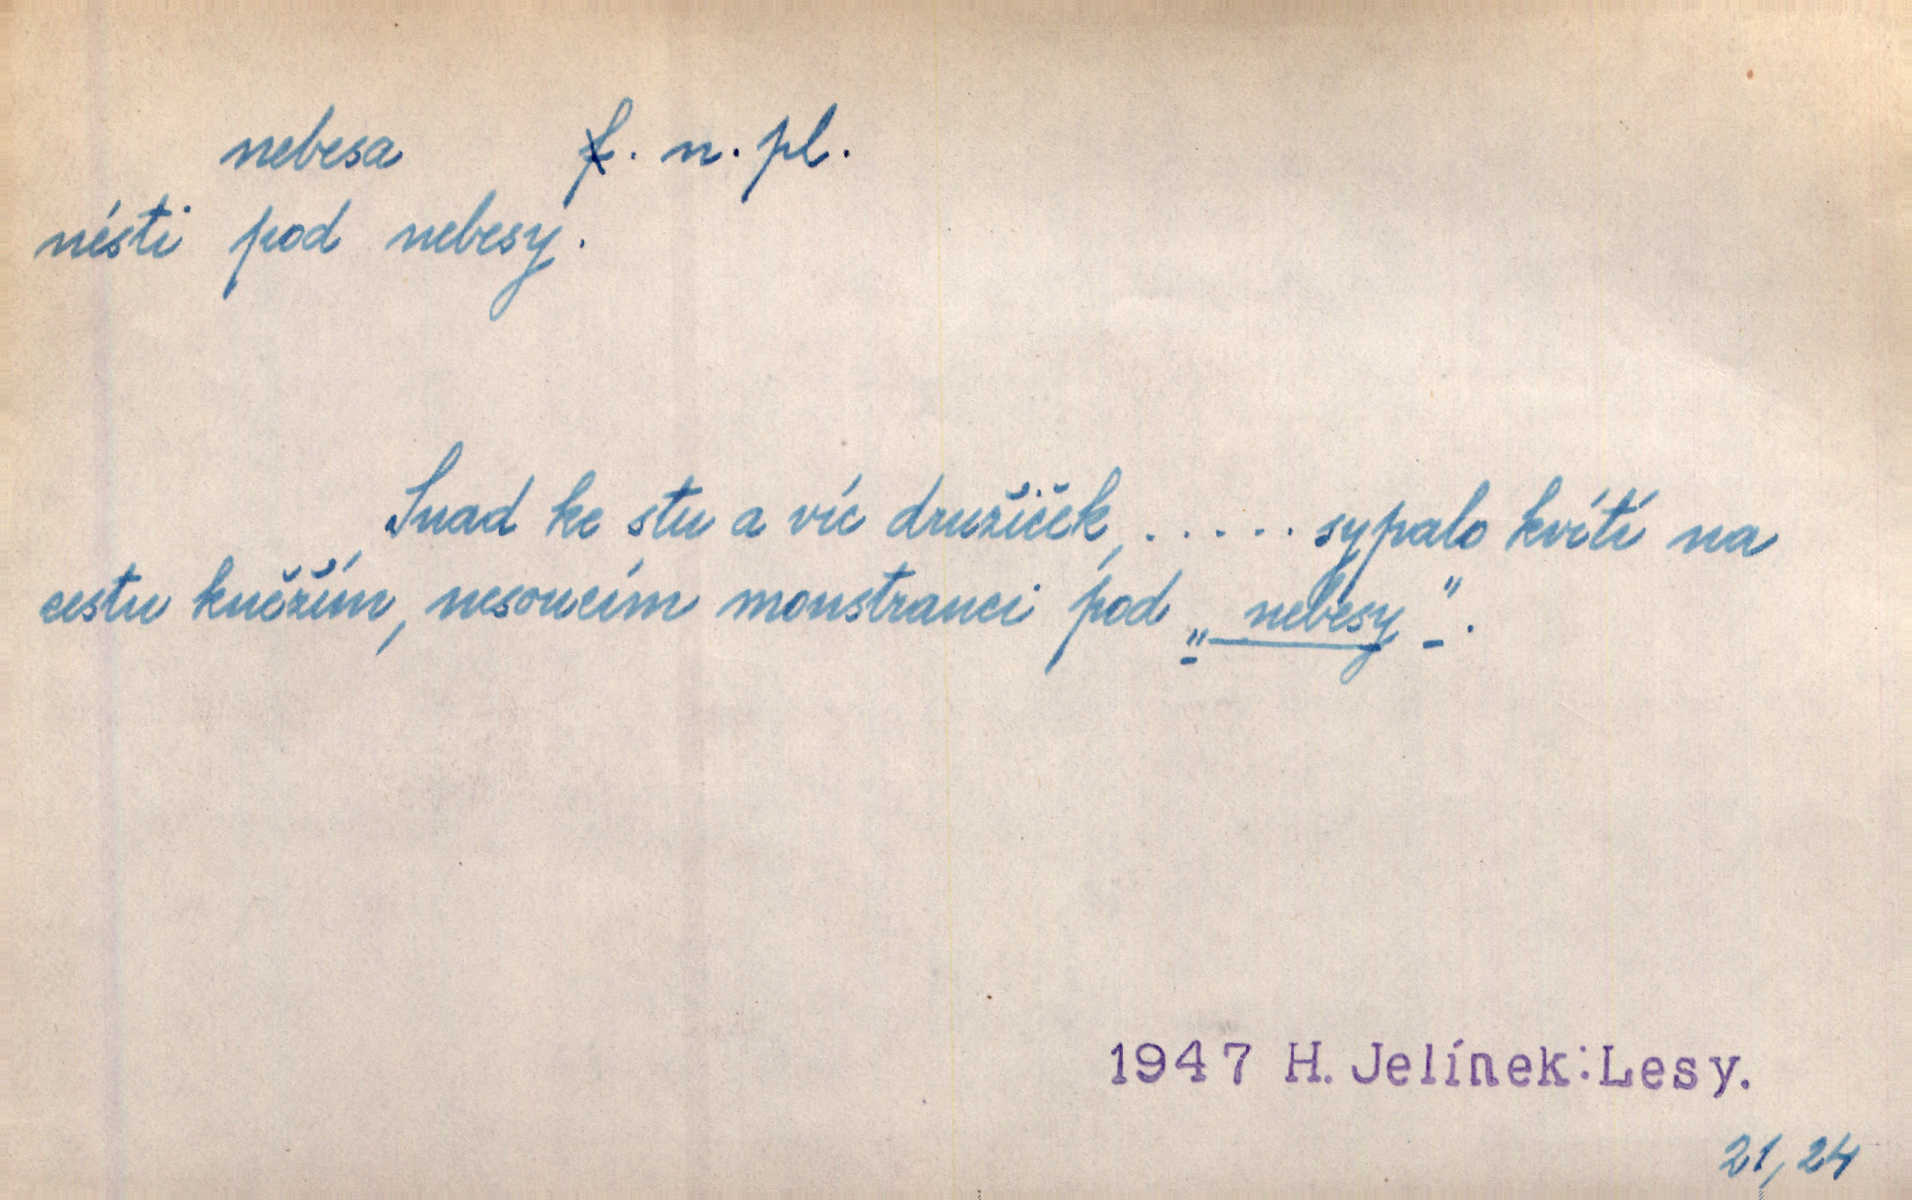 nebesa f. n. pl.
nésti pod nebesy.
Snad ke stu a víc družiček, ..... sypalo kvítí na
cestu kněžím, nesoucím monstranci pod „nebesy".
1947 H. Jelínek: Lesy.
21, 24